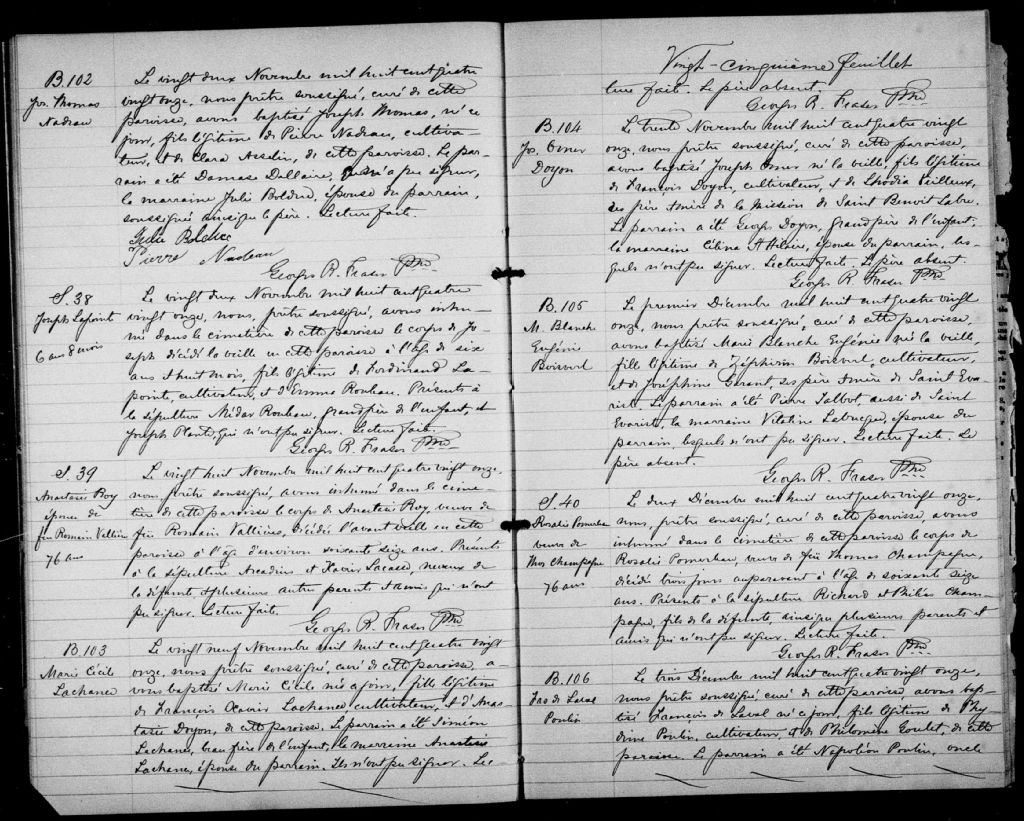 B.102
Jos. Thomas
Nadeau
Le vingt deux Novembre mil huit cent quatre
vingt onze, nous prêtre soussigné, curé de cette
paroisse, avons baptisé Joseph Thomas, né ce
jour, fils légitime de Pierre Nadeau, cultiva-
teur, et de Clara Asselin, de cette paroisse. Le par-
rain a été Damase Dallaire, qui n'a pu signer,
la marraine Julie Bolduc, épouse du parrain,
soussignée ainsi que le père. Lecture faite.
Julie Bolduc
Pierre Nadeau
Georges R. Fraser Ptre
S.38
Joseph Lapointe
6 ans 8 mois
Le vingt deux Novembre mil huit cent quatre
vingt onze, nous, prêtre soussigné, avons inhu-
mé dans le cimetière de cette paroisse le corps de Jo-
seph décédé la veille en cette paroisse à l'âge de six
ans et huit mois, fils légitime de Ferdinand La
pointe, cultivateur, et d'Emma Rouleau. Présents à
la sépulture Médar Rouleau, grandpère de l'enfant, et
Joseph Planté, qui n'ont pu signer. Lecture faite.
Georges R. Fraser Ptre
S.39
Anastasie Roy
épouse de
feu Romain Vallière
76 ans
Le vingt huit Novembre mil huit cent quatre vingt onze,
nous prêtre soussigné, avons inhumé dans le cime-
tière de cette paroisse le corps de Anastasie Roy, veuve de
feu Romain Vallières, décédée l'avant veille en cette
paroisse à l'âge d'environ soixante seize ans. Présents
à la sépulture Arcadius et Xavier Lacasse, neveux de
la défunte et plusieurs autres parents et amis qui n'ont
pu signer. Lecture faite.
Georges R. Fraser Ptre
B.103
Marie Cécile
Lachance
Le vingt neuf Novembre mil huit cent quatre vingt
onze, nous prêtre soussigné, curé de cette paroisse, a-
vons baptisé Marie Cécile née ce jour, fille légitime
de François Xavier Lachance cultivateur, et d'Anas-
tasie Doyon, de cette paroisse. Le parrain a été Siméon
Lachance, beau père de l'enfant, la marraine Anastasie
Lachance, épouse du parrain. Ils n'ont pu signer. Lec-
Vingt-cinquième feuillet
ture faite. Le père absent.
Georges R. Fraser Ptre
B.104
Jos. Omer
Doyon
Le trente Novembre mil huit cent quatre vingt
onze, nous prêtre soussigné, curé de cette paroisse,
avons baptisé Joseph Omer né la veille, fils légitime
de François Doyon, cultivateur, et de Lhodia Veilleux,
ses père et mère de la Mission de Saint Benoit Labre.
Le parrain a été Georges Doyon, grand père de l'enfant,
la marraine Célina St Hilaire, épouse du parrain, les-
quels n'ont pu signer. Lecture faite. Le père absent.
Georges R. Fraser Ptre
B.105
M. Blanche
Eugénie
Boisvert
Le premier Décembre mil huit cent quatre vingt
onze, nous prêtre soussigné, curé de cette paroisse,
avons baptisé Marie Blanche Eugénie née la veille,
fille légitime de Zéphirin Boisvert, cultivateur,
et de Joséphine Gérant, ses père et mère de Saint Eva-
riste. Le parrain a été Pierre Talbot, aussi de Saint
Evariste, la marraine Vitaline Labrecque, épouse du
parrain, lesquels n'ont pu signer. Lecture faite. Le
père absent.
Georges R. Fraser Ptre
S.40
Rosalie Pomerleau
veuve de
Thos Champagne
76 ans
Le deux Décembre mil huit cent quatre vingt onze,
nous, prêtre soussigné, curé de cette paroisse, avons
inhumé dans le cimetière de cette paroisse le corps de
Rosalie Pomerleau, veuve de feu Thomas Champagne,
décédée trois jours auparavant à l'âge de soixante seize
ans. Présents à la sépulture Richard et Philias Cham-
pagne, fils de la défunte, ainsi que plusieurs parents et
amis qui n'ont pu signer. Lecture faite.
Georges R. Fraser Ptre
B.106
Frs de Laval
Poulin
Le trois Décembre mil huit cent quatre vingt onze,
nous prêtre soussigné, curé de cette paroisse avons bap-
tisé François de Laval né ce jour, fils légitime de
Poulin, cultivateur, et de Philomène Goulet, de cette
paroisse. Le parrain a été Napoléon Poulin, oncle